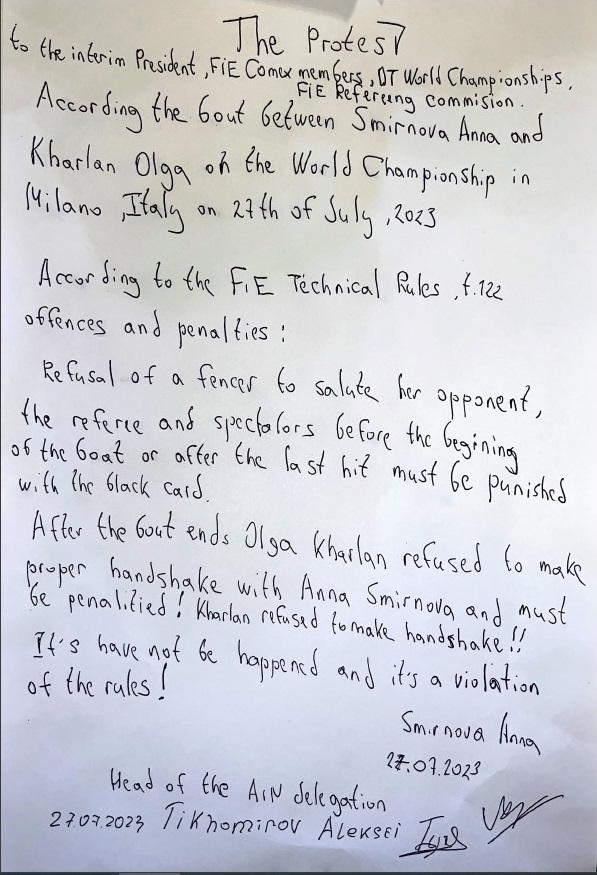 The Protest
to the interim President, FiE Comex members, DT World Championships,
FiE Refereeng commision.
According the bout between Smirnova Anna and
Kharlan Olga on the World Championship in
Milano, Italy on 27th of July, 2023
According to the FiE Technical Rules, t.122
offences and penalties:
Refusal of a fencer to salute her opponent,
the referee and spectators before the begining
of the boat or after the last hit must be punished
with the black card.
After the bout ends Olga Kharlan refused to make
proper handshake with Anna Smirnova and must
be penalitied! Kharlan refused to make handshake!!
It's have not be happened and it's a violation
of the rules!
Smirnova Anna
27.07.2023
Head of the AIN delegation
27.07.2023 Tikhomirov Aleksei